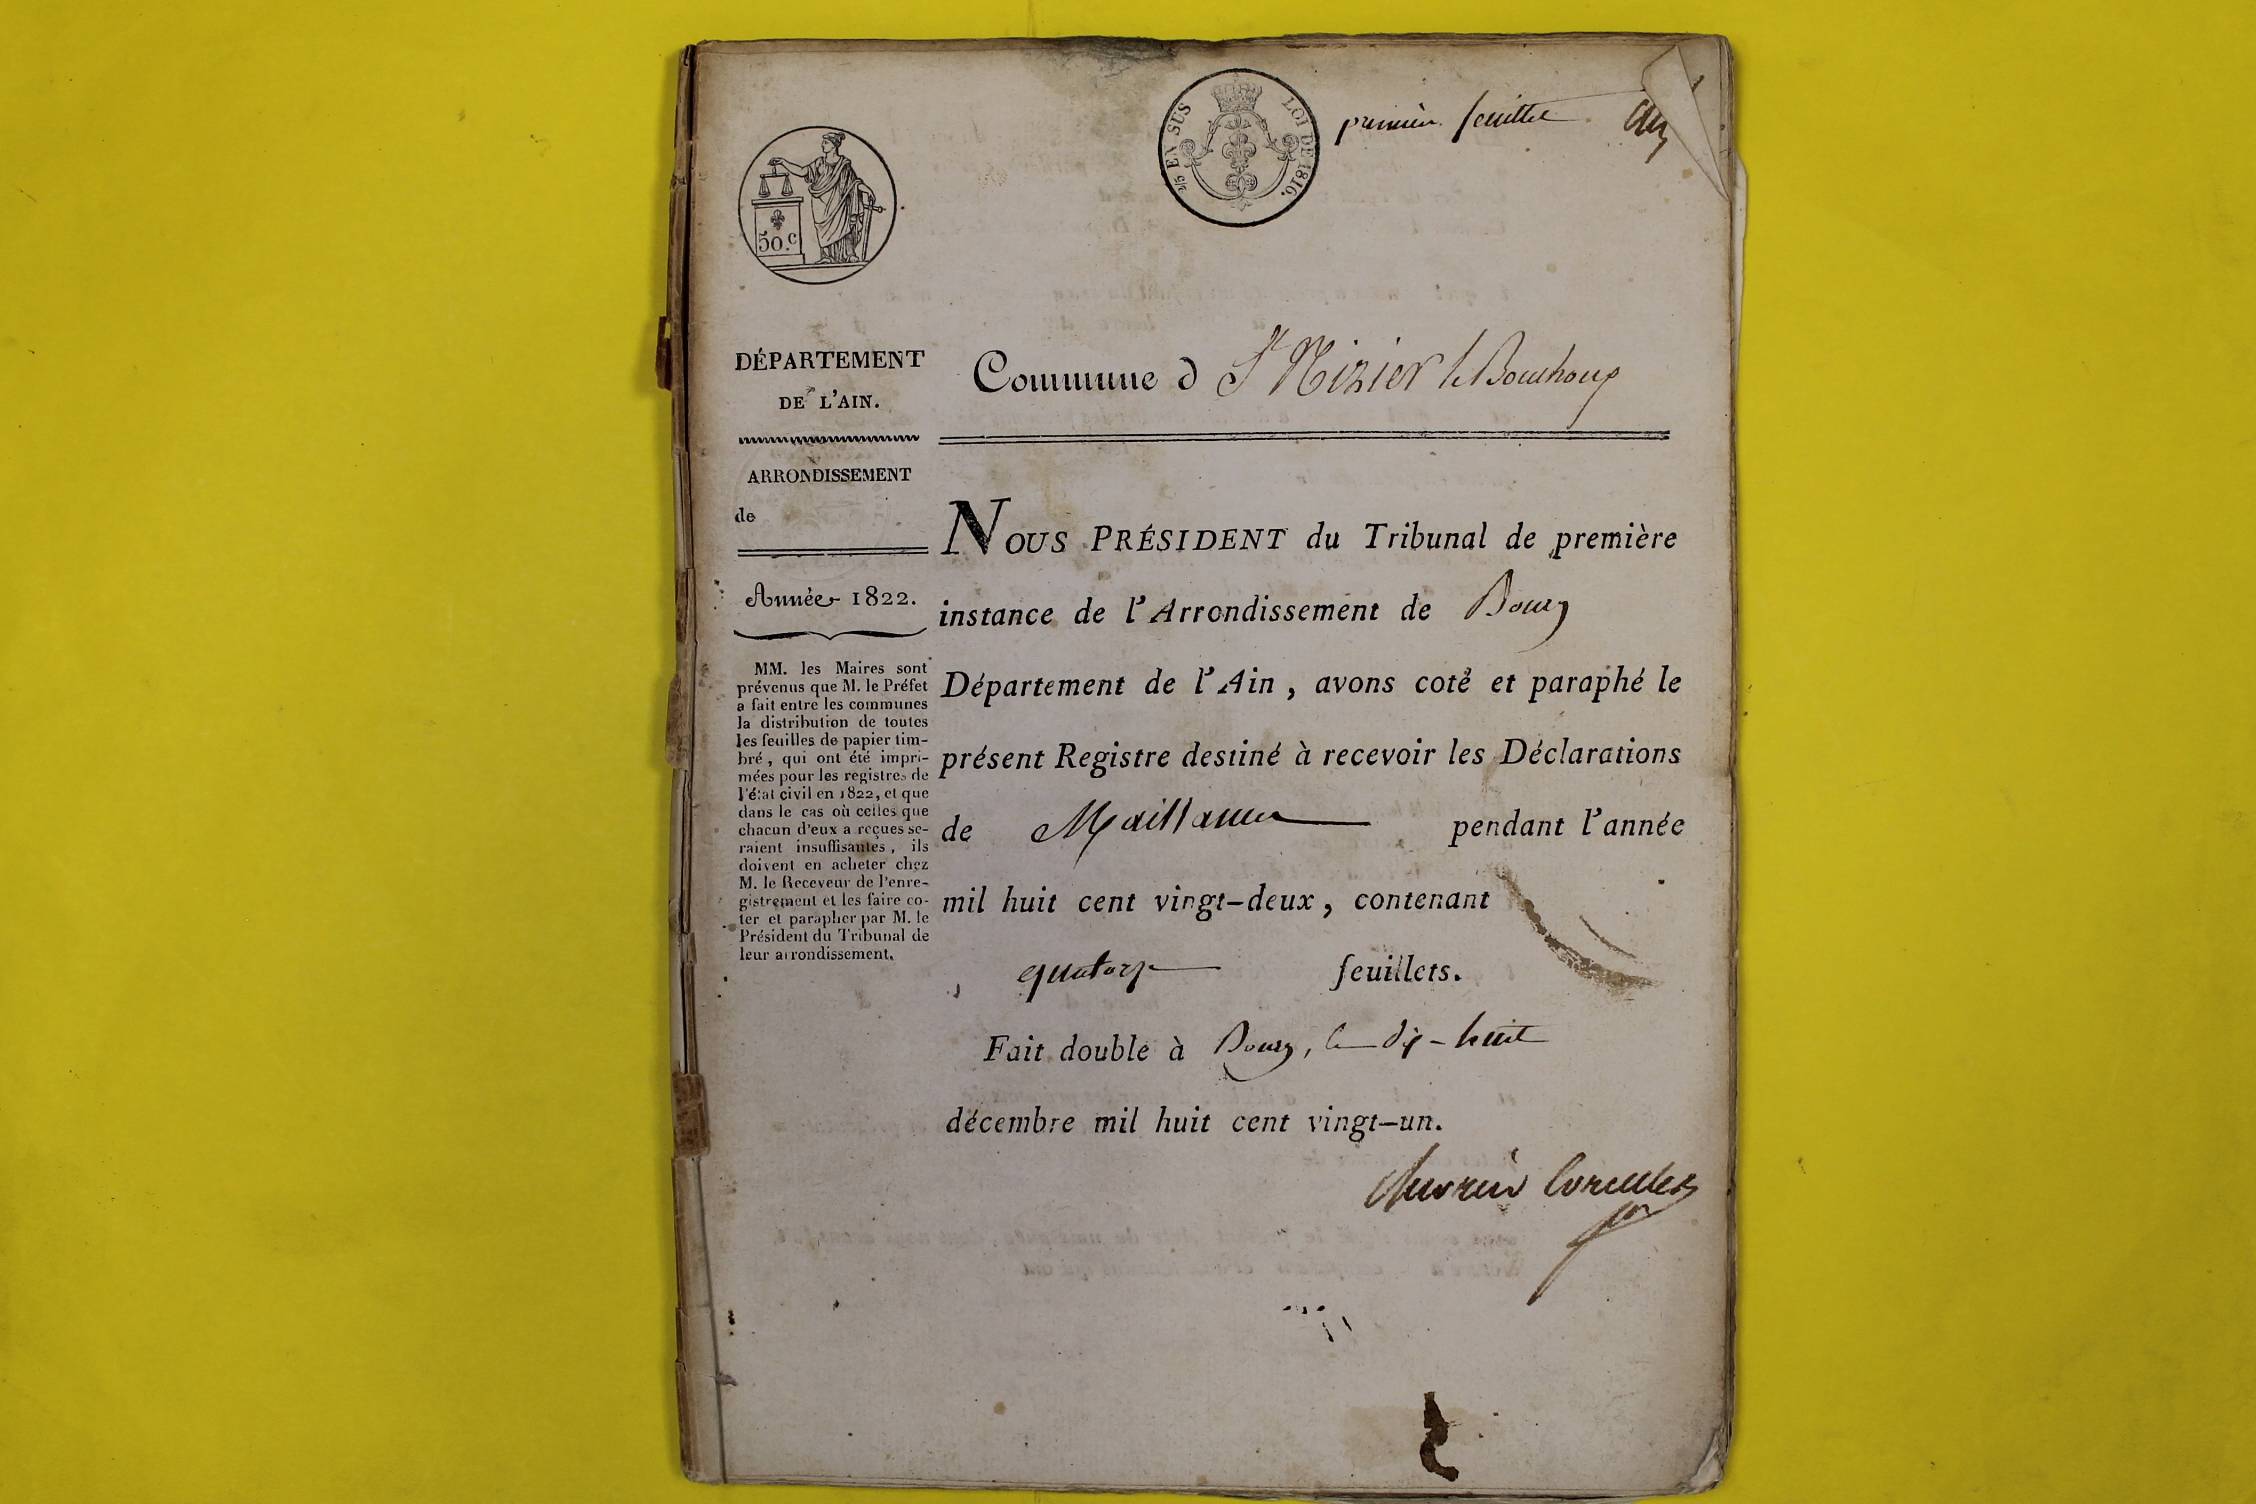 2/5 EN SUS LOI DE 1816.
première feuillet
50.c
DÉPARTEMENT
DE L'AIN.
Commune d St Nizier le Bouchoux
ARRONDISSEMENT
de
Année 1822.
MM. les Maires sont
prévenus que M. le Préfet
a fait entre les communes
la distribution de toutes
les feuilles de papier tim-
bré, qui ont été impri-
mées pour les registres de
l'état civil en 1822, et que
dans le cas où celles que
chacun d'eux a reçues se-
raient insuffisantes, ils
doivent en acheter chez
M. le Receveur de l'enre-
gistrement et les faire co-
ter et parapher par M. le
Président du Tribunal de
leur arrondissement.
NOUS PRÉSIDENT du Tribunal de première
instance de l'Arrondissement de Bourg
Département de l'Ain, avons coté et paraphé le
présent Registre destiné à recevoir les Déclarations
de Naissance pendant l'année
mil huit cent vingt-deux, contenant
quatorze feuillets.
Fait double à Bourg, le dix-huit
décembre mil huit cent vingt-un.